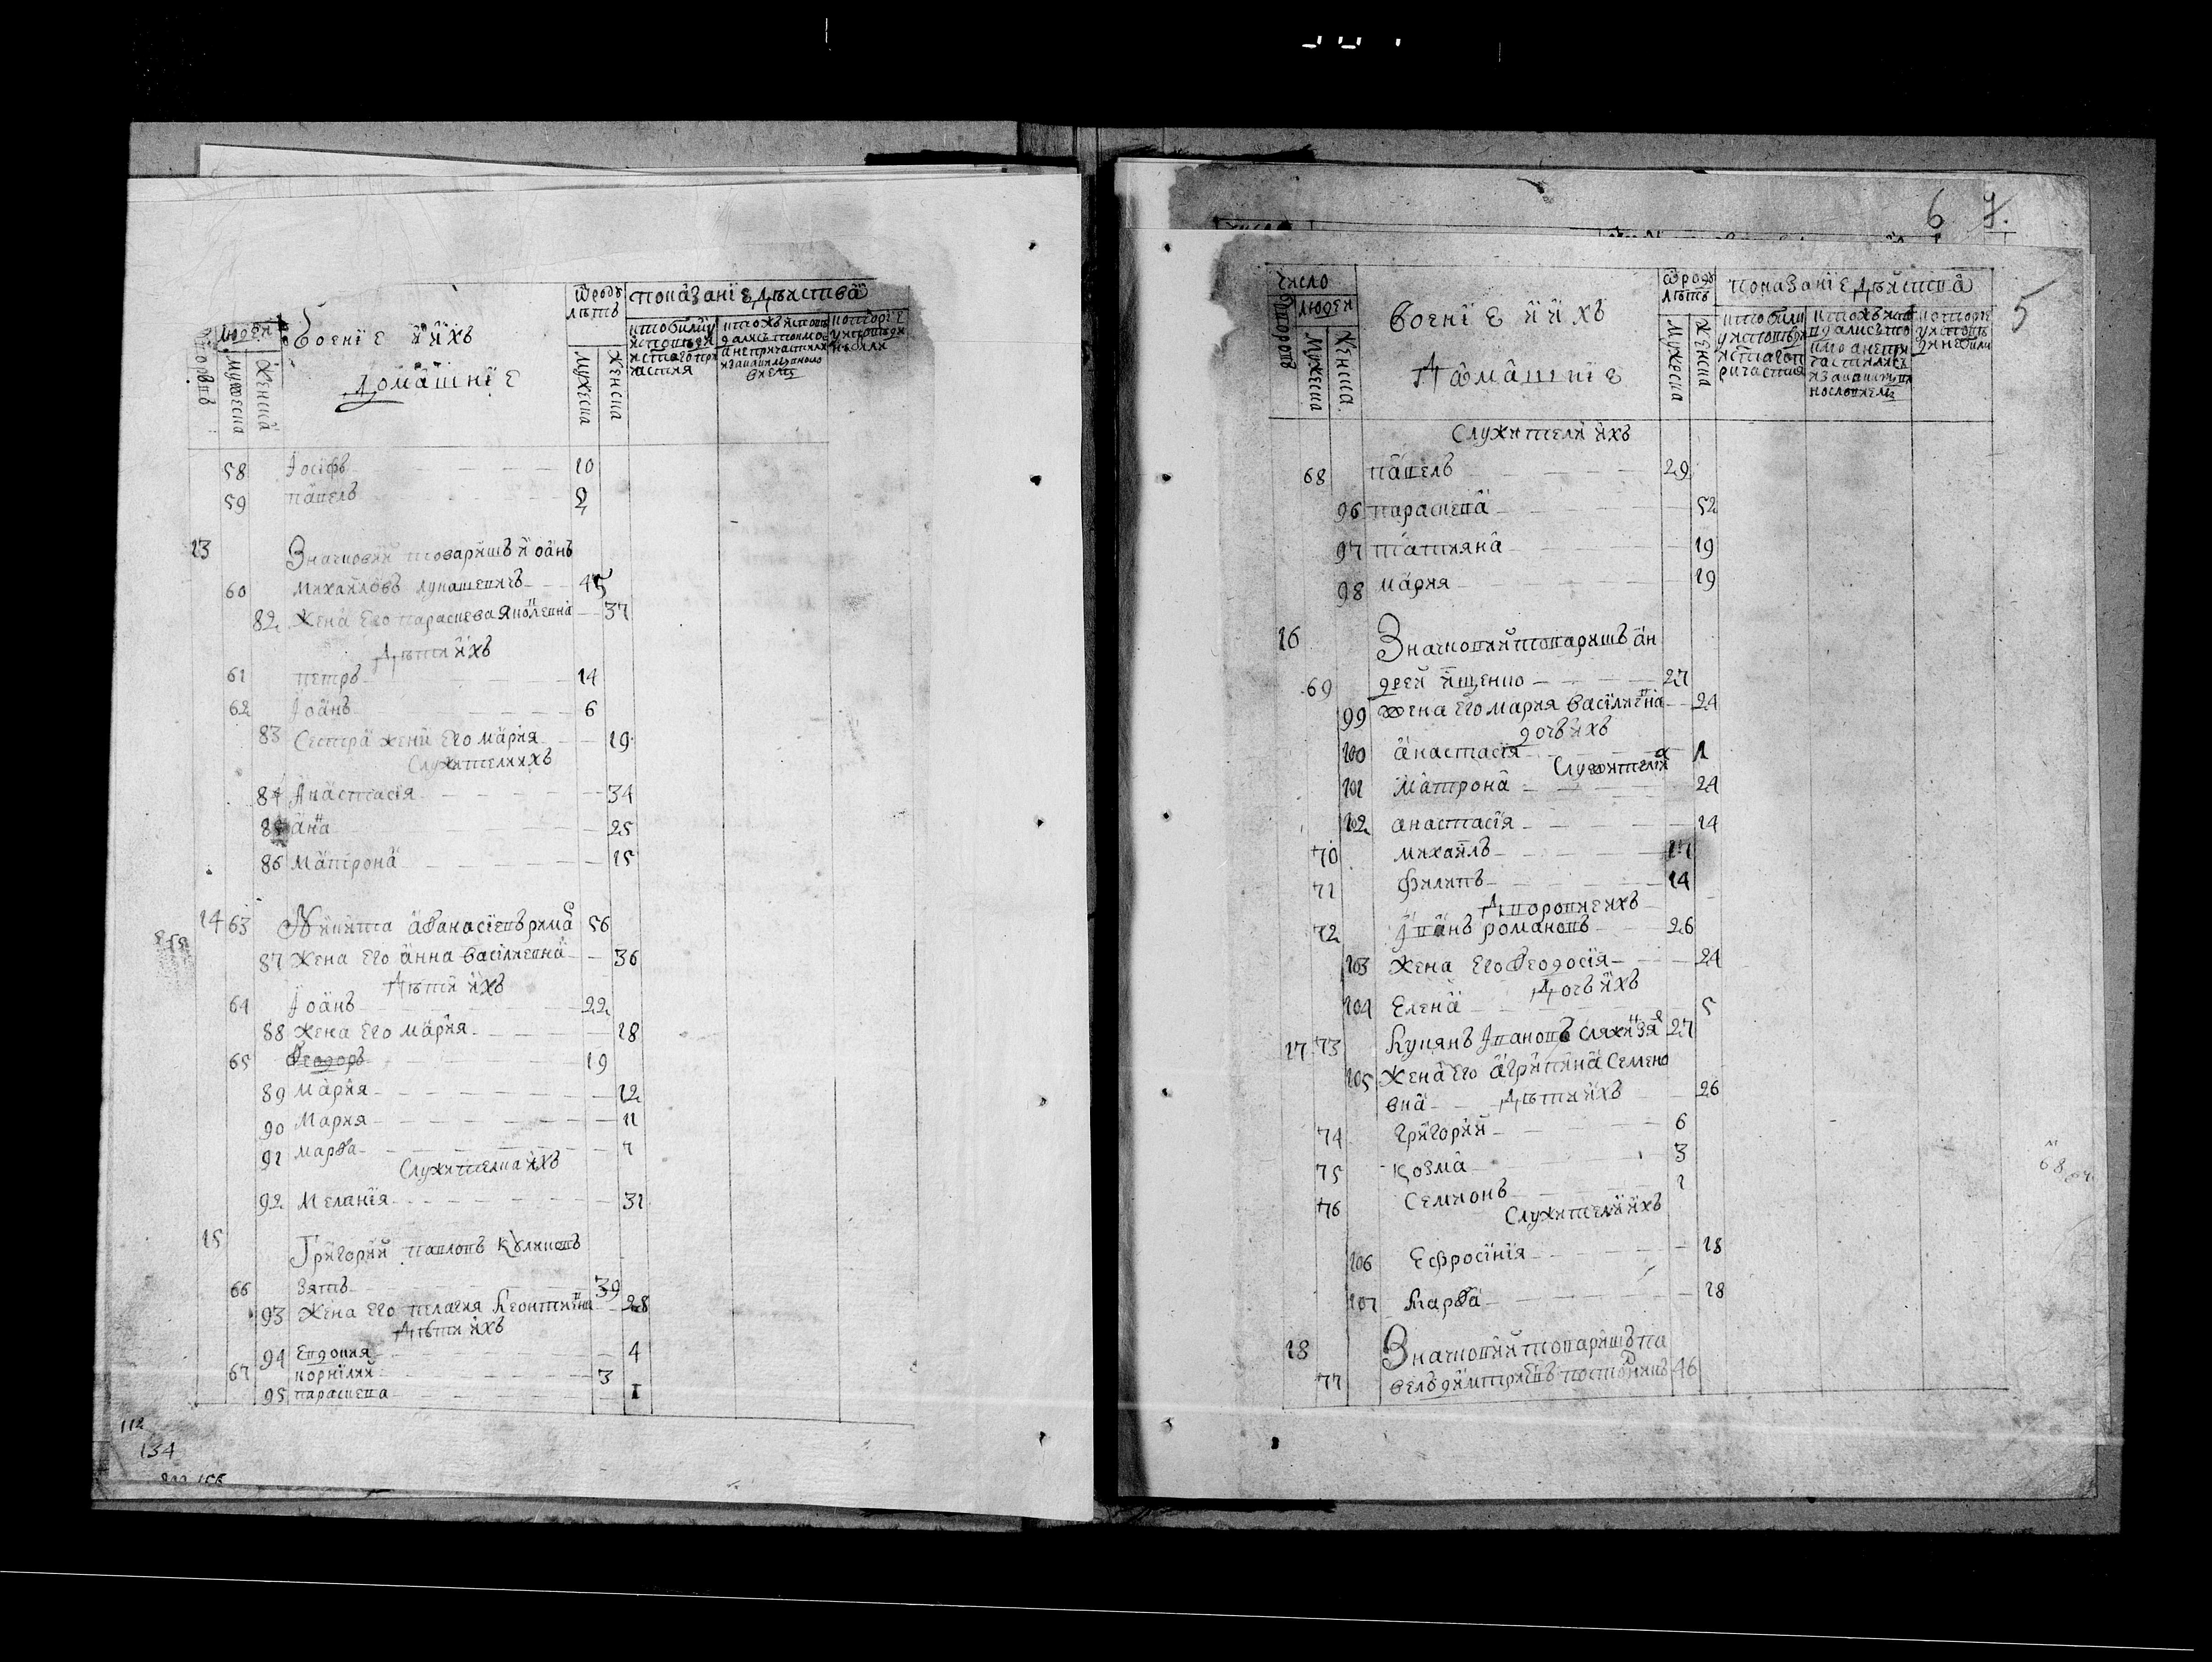 военїе и ихъ
домашнїе
ѿроду лѣтъ
показанїе дѣиства
людей
дворовъ
мужеска
женска
мужеска
женска
58 Іосифъ 10
59 павелъ 2
13 Значковий товаришъ иоанъ
60 михайловъ лукашевичъ 45
82 жена его параскева яковлевна 37
дѣти ихъ
61 петръ 14
62 Іоанъ 6
83 Сестра жени его мария 19
Служители ихъ
84 Анастасїя 34
85 анна 25
86 матрона 15
14 63 Никита аѳанасїевъ 56
87 жена его анна василиевна 36
дѣти ихъ
64 Іоанъ 22
88 жена его мария 18
65 Ѳеодоръ 19
89 мария 12
90 мария 11
91 марѳа 7
Служителка ихъ
92 меланїя 31
15 Григорий павловъ куликовъ
66 зять 39
93 жена его пелагия леонтиевна 28
дѣти ихъ
94 Евдокия 4
67 корнїлий 3
95 параскева 1
112
134
6 7.
5
число
людей
дворовъ
мужеска
женска
военїе и ихъ
домашнїе
ѿроду лѣтъ
мужеска
женска
показанїе дѣиства
Служители ихъ
68 павелъ 29
96 параскева 52
97 татияна 19
98 мария 19
16 Значковий товаришъ ан
69 дрей ищенко 27
99 жена его мария василиевна 24
дочъ ихъ
100 анастасїя 1
Служителя
101 матрона 24
102 анастасїя 14
70 михаилъ 17
71 филипъ 14
дворовие ихъ
72 Іванъ романовъ 26
103 жена его Ѳеодосїя 24
дочъ ихъ
104 Елена 5
17 73 Лукянъ Івановъ 27
105 жена его агрипина Семено
вна 26
дѣти ихъ
74 григорий 6
75 козма 3
76 Семионъ 1
Служители ихъ
106 Ефросїнїя 18
107 марѳа 18
18 Значковий товаришъ па
77 велъ димтриевъ 46
68